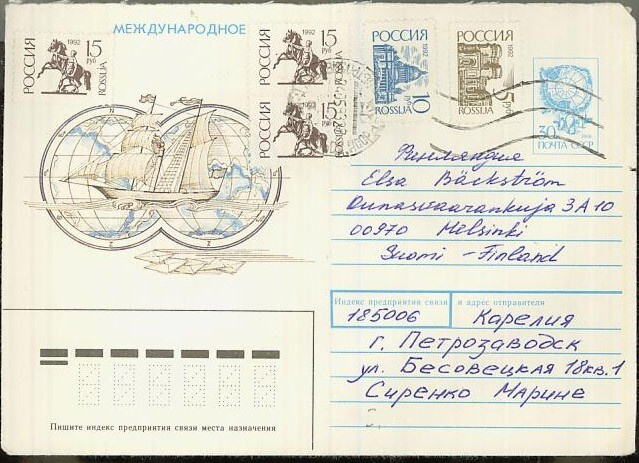 МЕЖДУНАРОДНОЕ
РОССИЯ 1992 15 руб ROSSIJA
РОССИЯ 1992 15 руб ROSSIJA
РОССИЯ 1992 15 руб ROSSIJA
РОССИЯ 1992 10 руб ROSSIJA
РОССИЯ 1992 5 руб ROSSIJA
30 к
ПОЧТА СССР
Финляндия
Elsa Bäckström
Ounasvaarankuja 3 A 10
00970 Helsinki
Suomi - Finland
Индекс предприятия связи и адрес отправителя
185006 Карелия
г. Петрозаводск
ул. Бесовецкая 18 кв. 1
Сиренко Марине
Пишите индекс предприятия связи места назначения